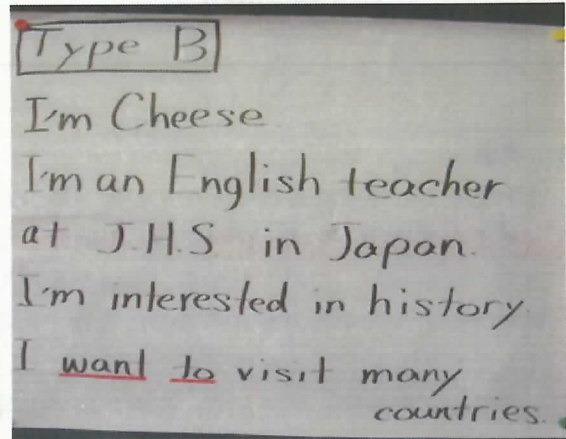 Type B
I'm Cheese
I'm an English teacher
at J.H.S in Japan.
I'm interested in history.
I want to visit many
countries.